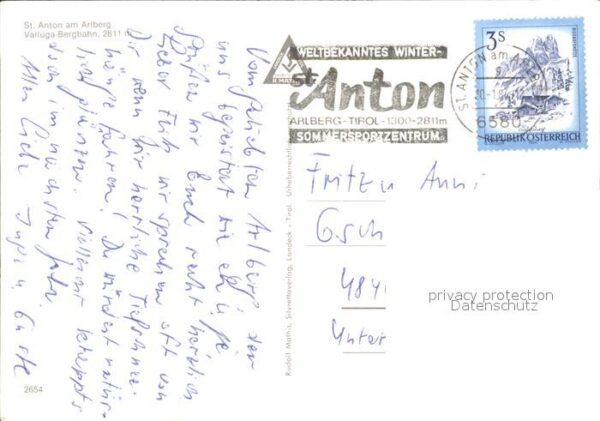 St. Anton am Arlberg
Valluga-Bergbahn, 2811
Vom geliebten Arlberg den
uns begeistert wie eh u je
Grüßen wir Euch recht herzlich
Lieber Fritz wir sprechen oft von
Dir wenn wir herrliche Tiefschnee-
hänge fahren! Du würdest natür-
lich glänzen. Vielleicht klappts
doch im nächsten Jahr.
Alles Liebe
2654
Rudolf Mathis, Silvrettaverlag, Landeck - Tirol.
WELTBEKANNTES WINTER-
St. Anton
ARLBERG-TIROL-1300-2811m
SOMMERSPORTZENTRUM
ST. ANTON am
6580
3S
REPUBLIK ÖSTERREICH
Fritz u Anni
Gsch
484
Unter
privacy protection
Datenschutz